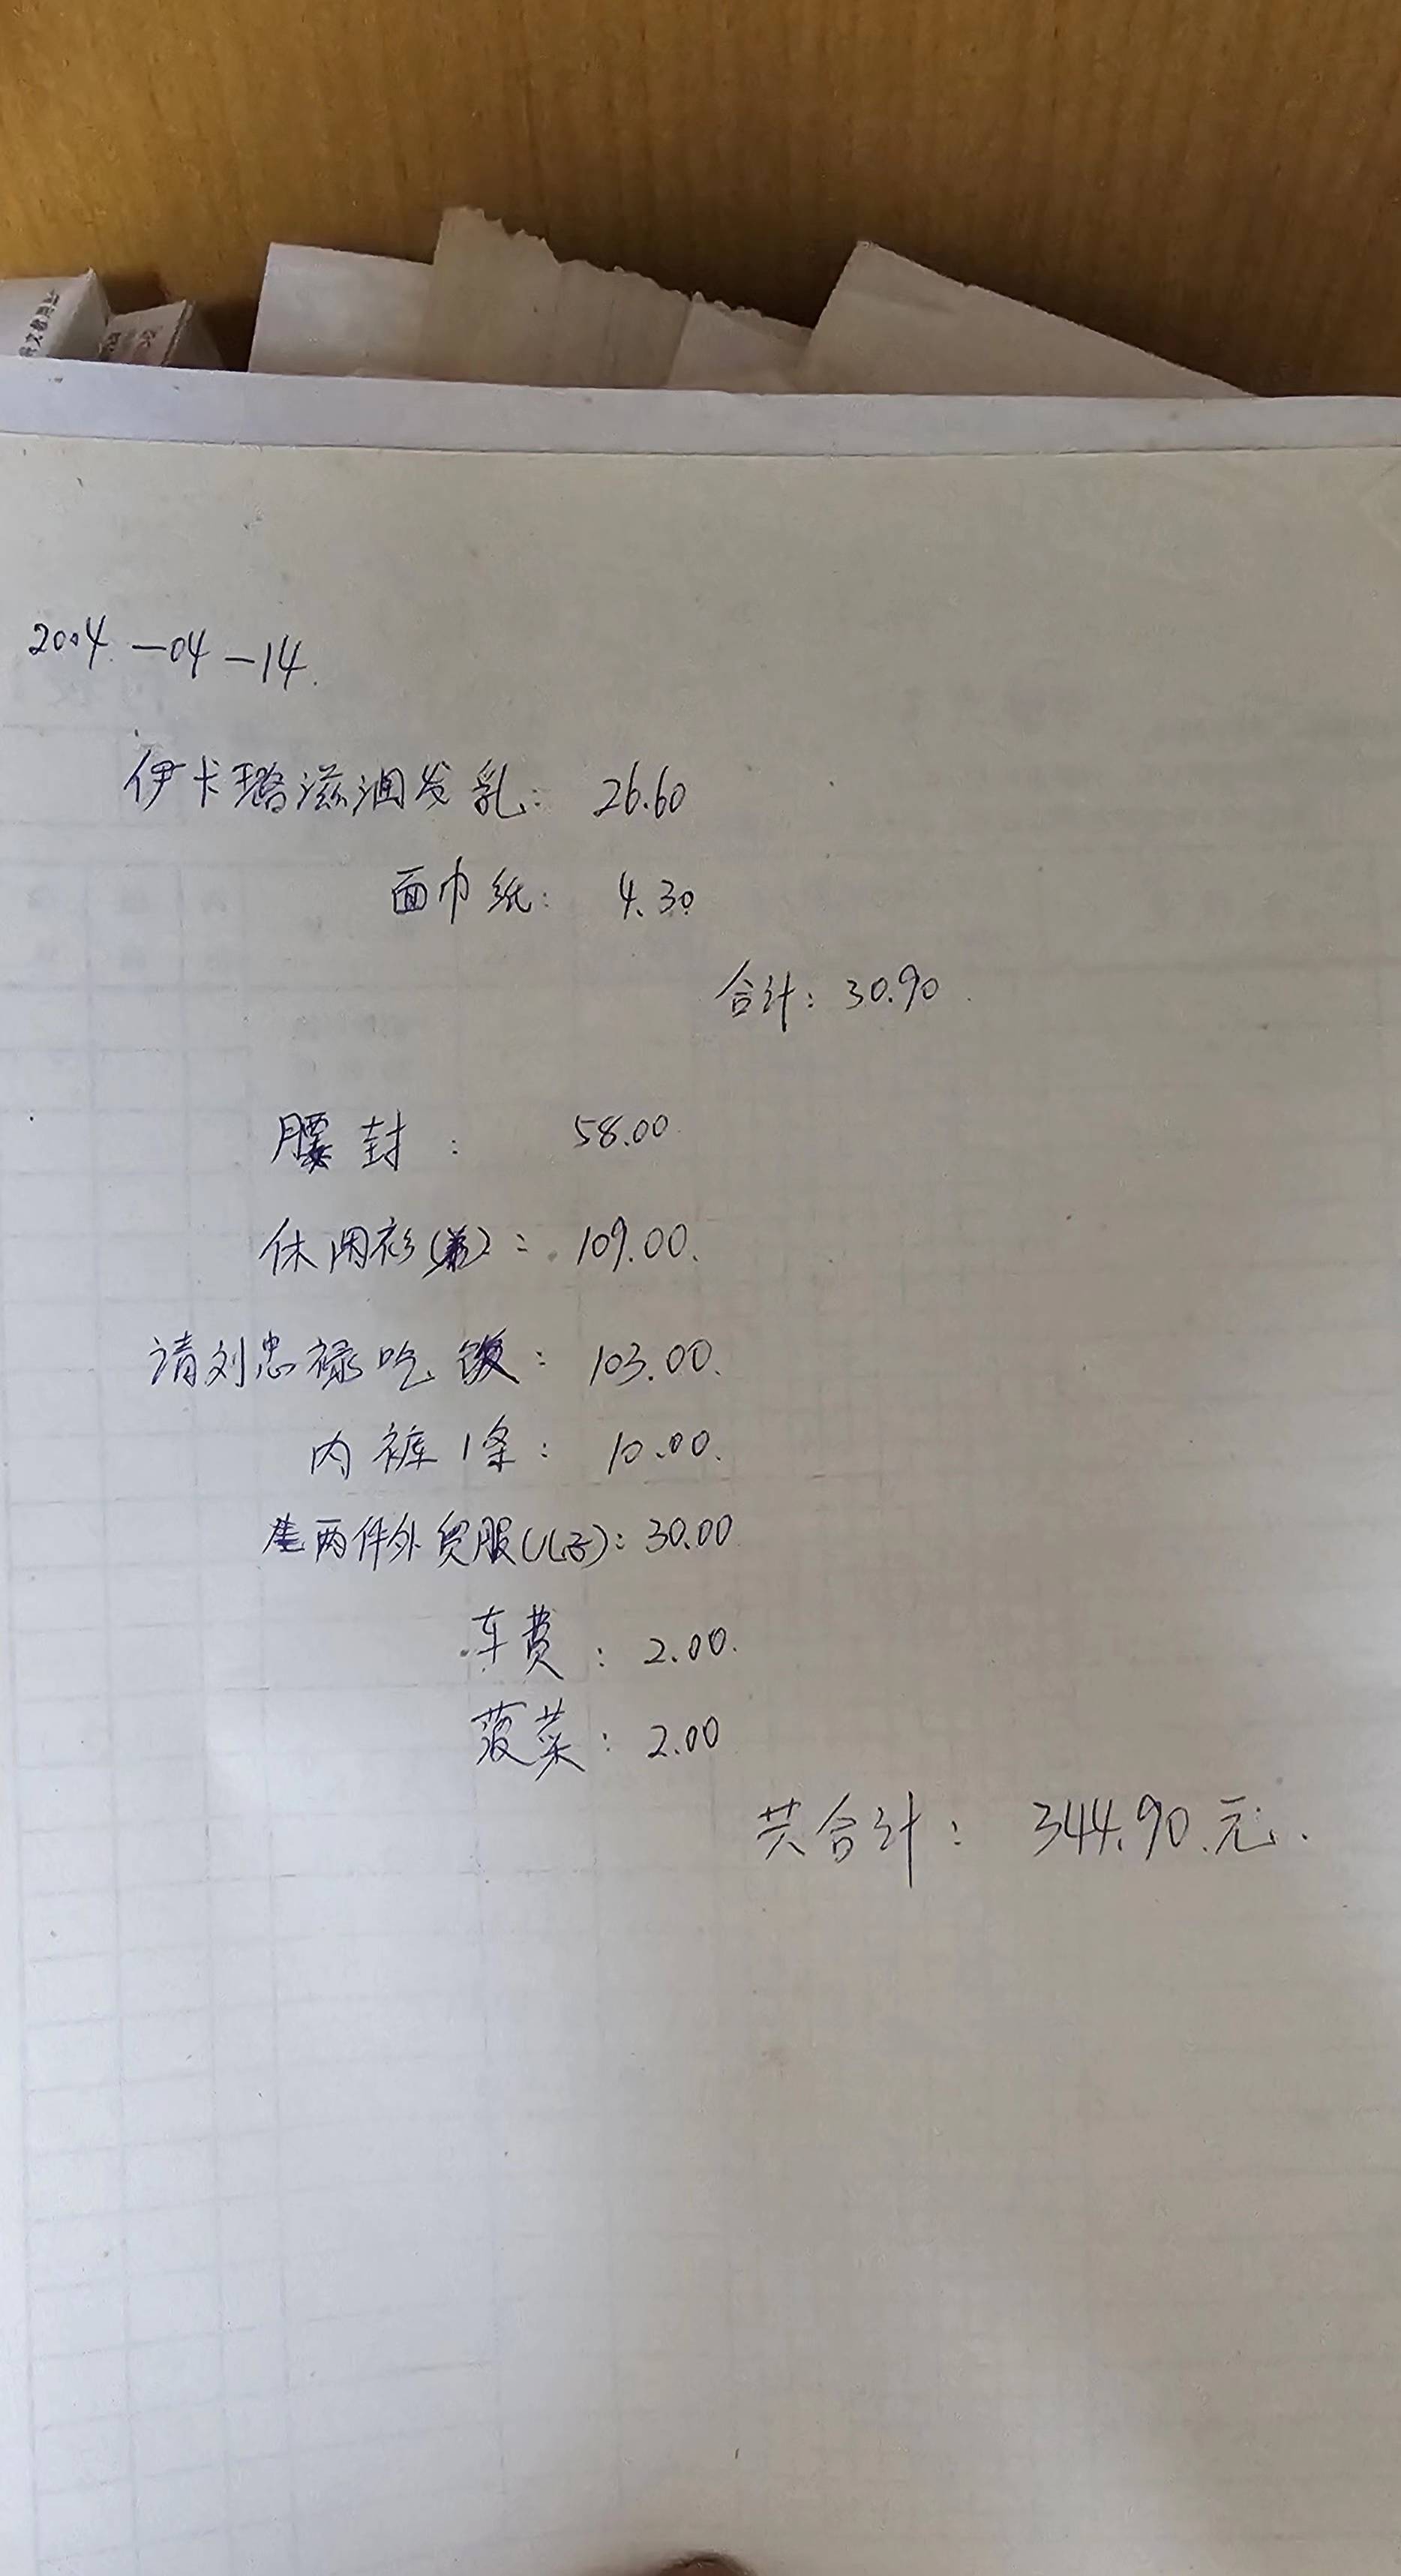 2004-04-14.
伊卡璐滋润发乳: 26.60
面巾纸: 4.30
合计: 30.90
腰封: 58.00
休闲衫(弟): 109.00.
请刘忠禄吃饭: 103.00.
内裤1条: 10.00.
两件外贸服(儿子): 30.00
车费: 2.00.
菠菜: 2.00
共合计: 344.90.元.